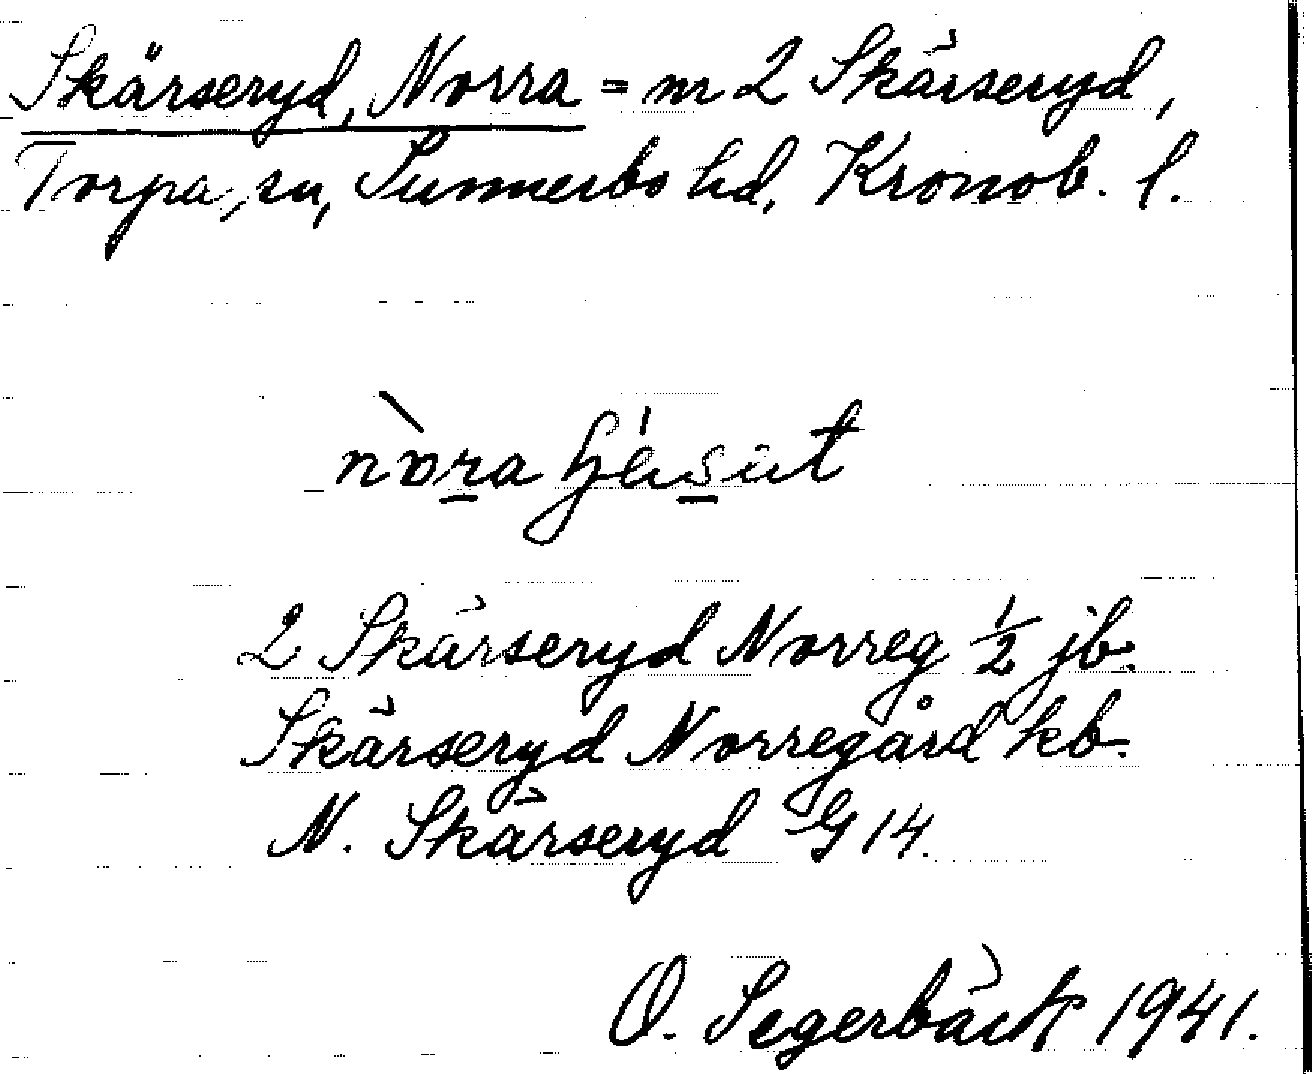 Skärseryd, Norra = nr 2 Skärseryd,
Torpa sn, Sunnerbo hd, Kronob. l.
nòra
2 Skärseryd Norreg ½ jb.
Skärseryd Norregård kb.
N. Skärseryd G 14.
O. Segerbäck 1941.